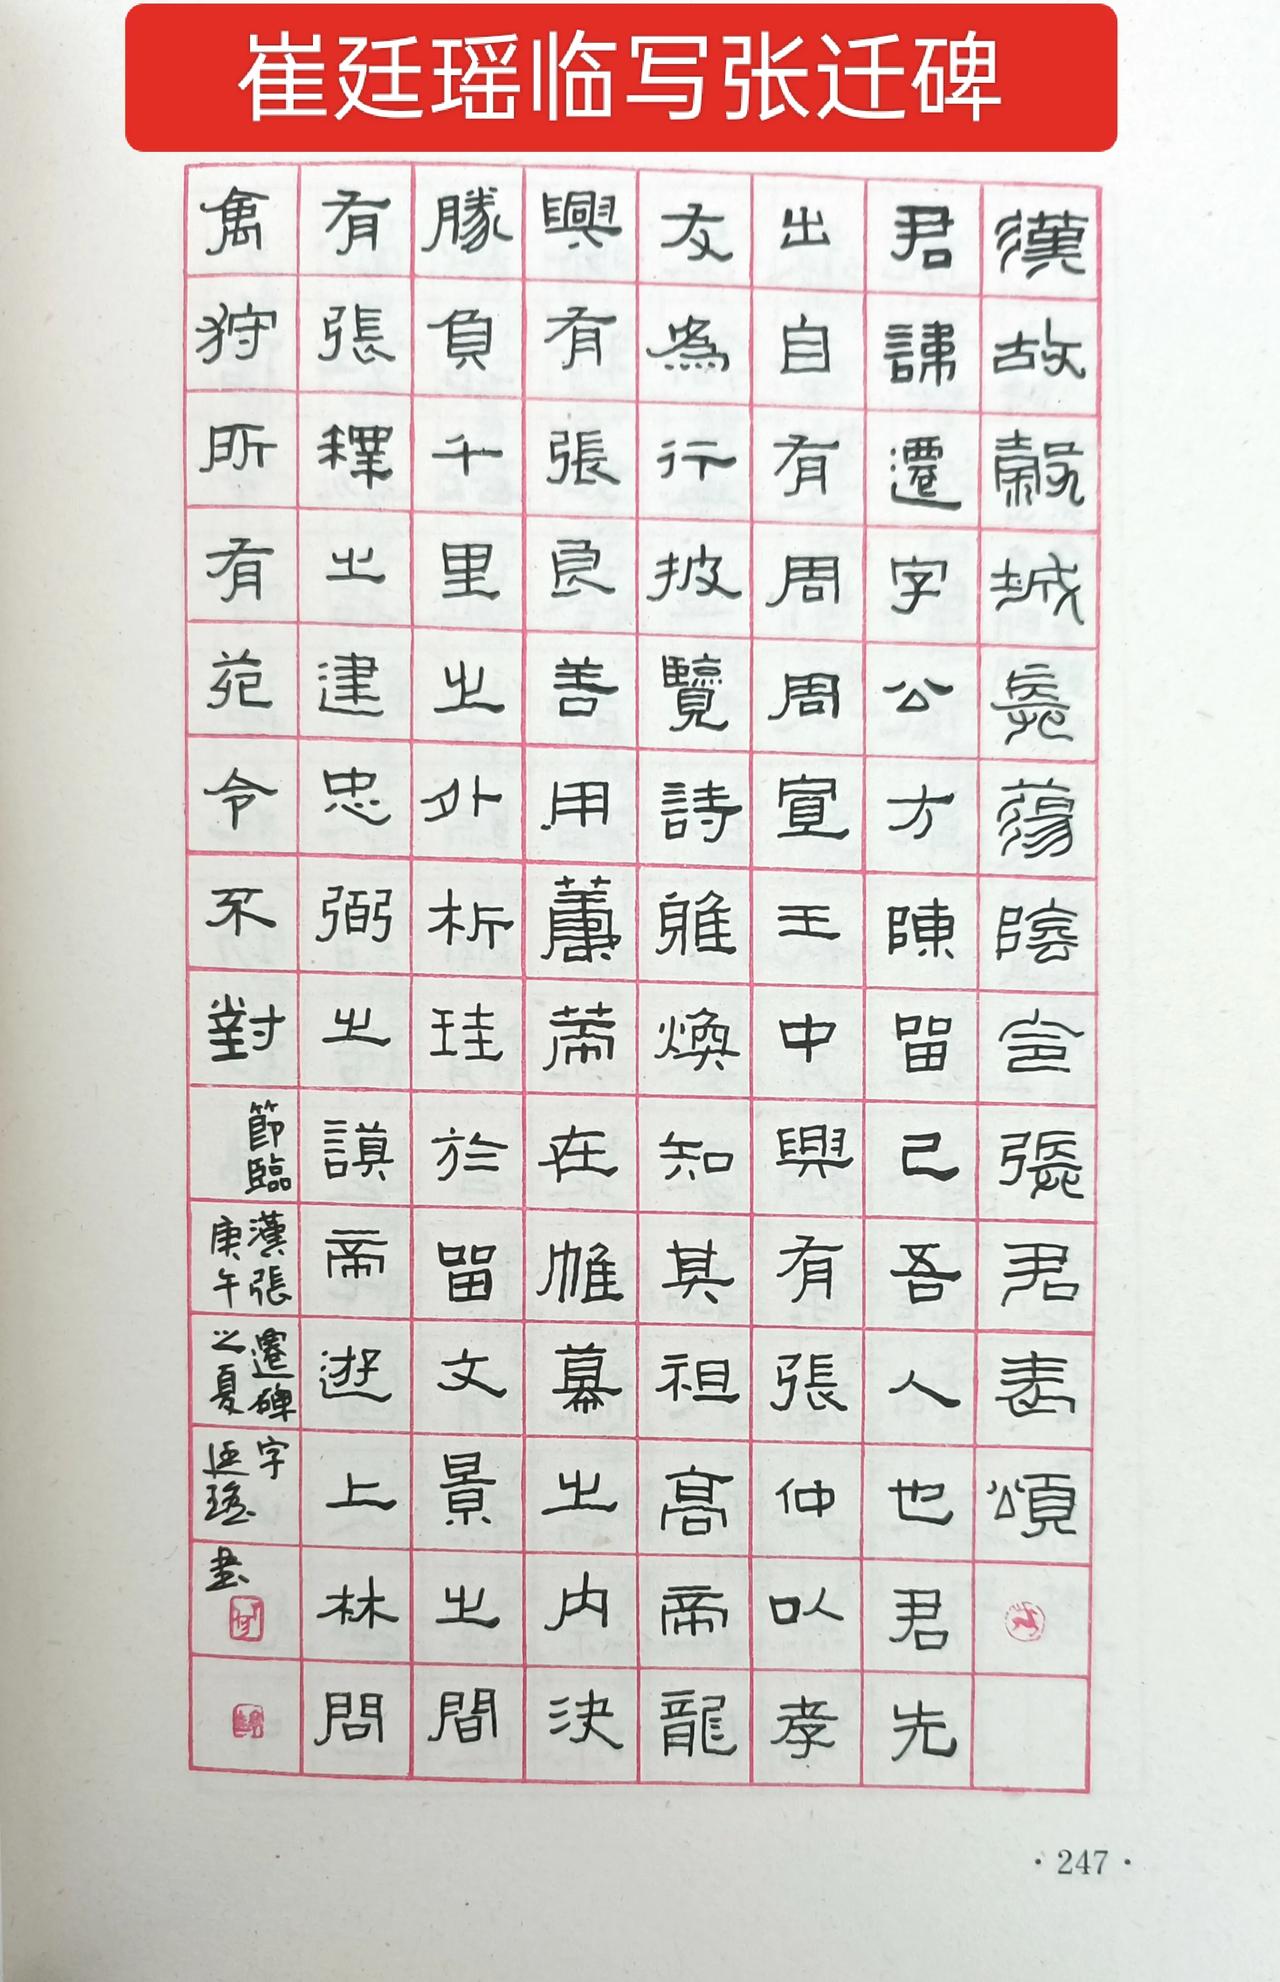 崔廷瑶临写张迁碑
漢故穀城長蕩陰令張君表頌
君諱遷字公方陳留己吾人也君先
出自有周周宣王中興有張仲以孝
友為行披覽詩雅煥知其祖高帝龍
興有張良善用蕭苐在帷幕之内決
勝負千里之外析珪於留文景之間
有張釋之建忠弼之謨帝遊上林問
禽狩所有苑令不對
節臨漢張遷碑字
庚午之夏廷瑤書
·247·